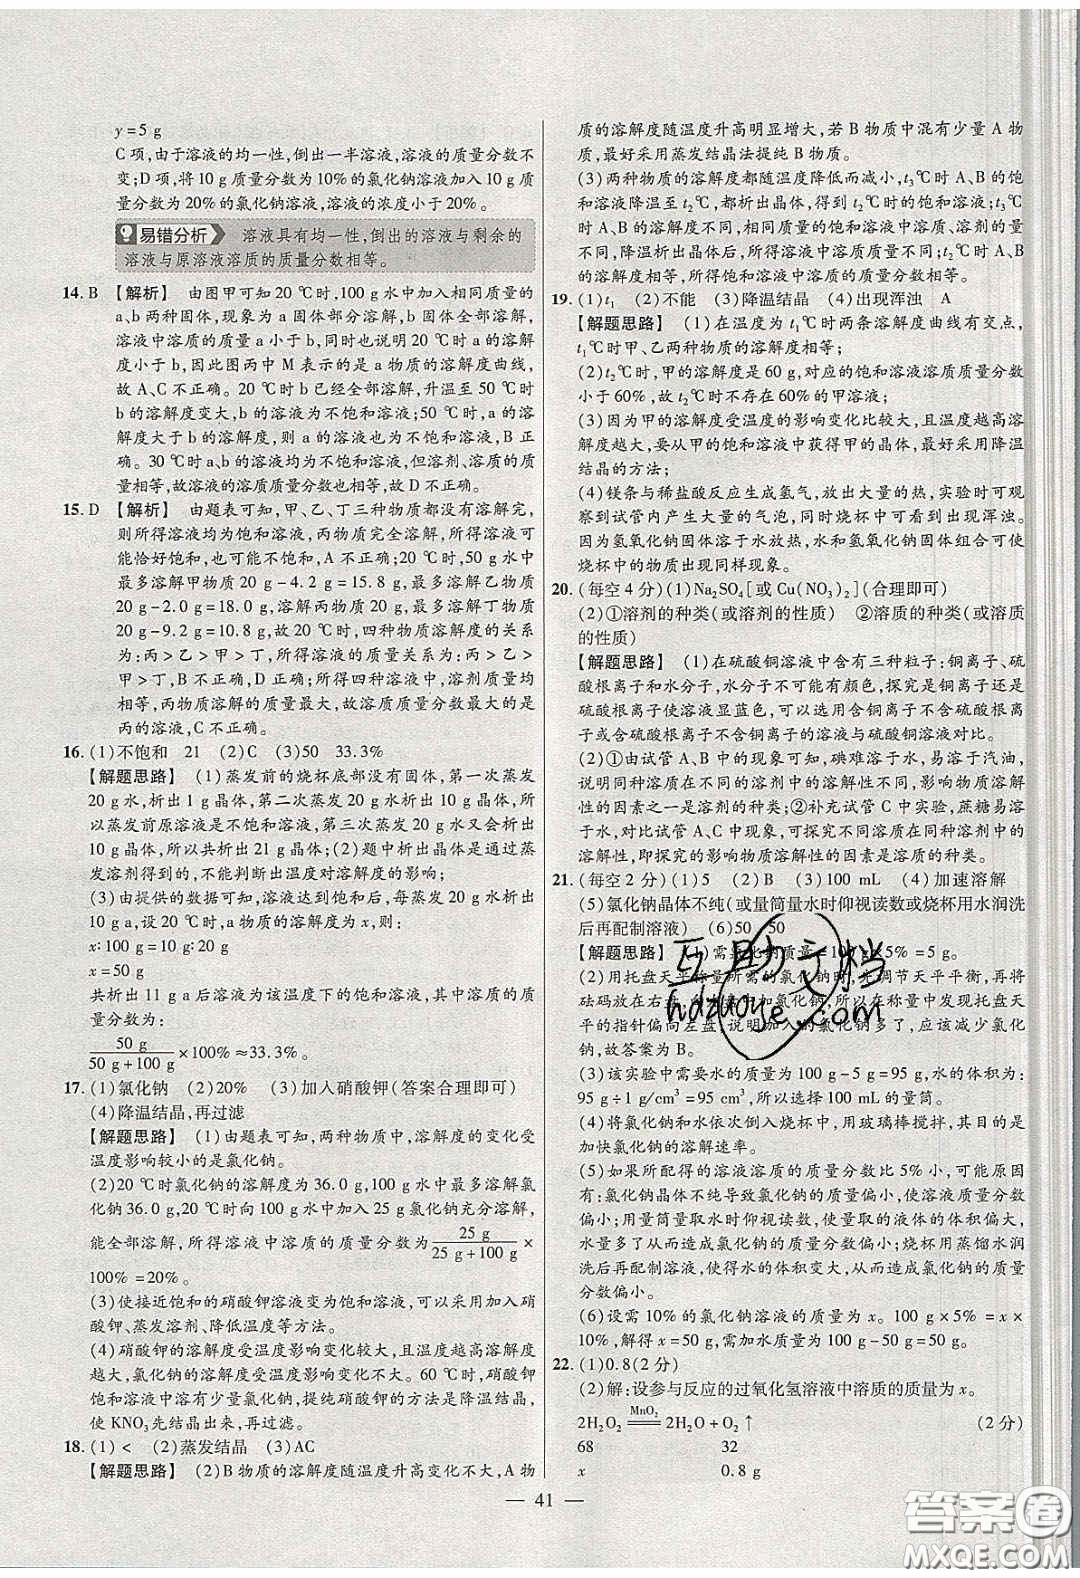 y=5 g
C项,由于溶液的均一性,倒出一半溶液,溶液的质量分数不
变;D项,将10 g质量分数为10%的氯化钠溶液加入10 g质
量分数为20%的氯化钠溶液,溶液的浓度小于20%。
易错分析 溶液具有均一性,倒出的溶液与剩余的
溶液与原溶液溶质的质量分数相等。
14. B 【解析】 由图甲可知20 ℃时,100 g水中加入相同质量的
a、b两种固体,现象为a固体部分溶解,b固体全部溶解,
溶液中溶质的质量a小于b,同时也说明20 ℃时a的溶
解度小于b,因此图丙中M表示的是a物质的溶解度曲线,
故A、C不正确。20 ℃时b已经全部溶解,升温至50 ℃时
b的溶解度变大,b的溶液为不饱和溶液;50 ℃时,a的溶
解度大于b的溶解度,则a的溶液也为不饱和溶液,B正
确。30 ℃时a、b的溶液均为不饱和溶液,但溶剂、溶质的
质量均相等,故溶液的溶质质量分数也相等,故D不正确。
15. D 【解析】 由题表可知,甲、乙、丁三种物质都没有溶解完,
则所得溶液均为饱和溶液,丙物质完全溶解,所得溶液可
能恰好饱和,也可能不饱和,A不正确;20 ℃时,50 g水中
最多溶解甲物质20 g-4.2 g=15.8 g,最多溶解乙物质
20 g-2.0 g=18.0 g,溶解丙物质20 g,最多溶解丁物质
20 g-9.2 g=10.8 g,故20 ℃时,四种物质溶解度的关系
为:丙>乙>甲>丁,所得溶液的质量关系为:丙>乙>
甲>丁,B不正确,D正确;所得四种溶液中,溶剂质量均
相等,丙物质溶解的质量最大,故溶质质量分数最大的是
丙的溶液,C不正确。
16. (1)不饱和 21 (2)C (3)50 33.3%
【解题思路】 (1)蒸发前的烧杯底部没有固体,第一次蒸发
20 g水,析出1 g晶体,第二次蒸发20 g水,析出10 g晶体,所
以蒸发前原溶液是不饱和溶液,第三次蒸发20 g水又会析出
10 g晶体,所以共析出21 g晶体;(2)题中析出晶体是通过蒸
发溶剂得到的,不能判断出温度对溶解度的影响;
(3)由提供的数据可知,溶液达到饱和后,每蒸发20 g水析出
10 g a,设20 ℃时,a物质的溶解度为x,则:
x∶100 g=10 g∶20 g
x=50 g
共析出11 g a后溶液为该温度下的饱和溶液,其中溶质的质
量分数为:
50 g/(50 g+100 g)×100%≈33.3%。
17. (1)氯化钠 (2)20% (3)加入硝酸钾(答案合理即可)
(4)降温结晶,再过滤
【解题思路】 (1)由题表可知,两种物质中,溶解度的变化受
温度影响较小的是氯化钠。
(2)20 ℃时氯化钠的溶解度为36.0 g,100 g水中最多溶解氯
化钠36.0 g,20 ℃时向100 g水中加入25 g氯化钠充分溶解,
能全部溶解,所得溶液中溶质的质量分数为25 g/(25 g+100 g)×
100%=20%。
(3)使接近饱和的硝酸钾溶液变为饱和溶液,可以采用加入硝
酸钾、蒸发溶剂、降低温度等方法。
(4)硝酸钾的溶解度受温度影响较大,且温度越高溶解度越
大,氯化钠的溶解度受温度影响不大。60 ℃时,硝酸钾
饱和溶液中溶有少量氯化钠,提纯硝酸钾的方法是降温结晶,
使KNO3先结晶出来,再过滤。
18. (1)< (2)蒸发结晶 (3)AC
【解题思路】 (2)B物质的溶解度随温度升高变化不大,A物
质的溶解度随温度升高明显增大,若B物质中混有少量A物
质,最好采用蒸发结晶法提纯B物质。
(3)两种物质的溶解度都随温度降低而减小,t3℃时,A、B的饱
和溶液降温至t2℃,都析出晶体,都是饱和溶液,t2℃时,A、
B的溶解度不同,等质量的饱和溶液中溶质、溶剂的质
量不同,降温析出晶体后,所得溶液中溶质、溶剂质量也不同;
溶解度相等,所得饱和溶液中溶质的质量分数也相等。
19. (1)t1 (2)不能 (3)降温结晶 (4)出现浑浊 A
【解题思路】 (1)在温度为t1℃时两条溶解度曲线有交点,
t1℃时甲、乙两种物质的溶解度相等;
(2)t2℃时,甲的溶解度是60 g,对应的饱和溶液溶质质量分数
小于60%,故t2℃时不存在60%的甲溶液;
(3)因为甲的溶解度受温度的影响变化比较大,且温度越高溶
解度越大,要从甲的饱和溶液中获得甲的晶体,最好采用降温
结晶的方法;
(4)镁条与稀盐酸反应生成氢气,放出大量的热,实验时可观
察到试管内产生大量的气泡,同时烧杯中可看到出现浑浊。
因为氢氧化钠固体溶于水放热,水和氢氧化钠固体组合可使
烧杯中的物质出现同样现象。
20. (每空4分)(1)Na2SO4[或Cu(NO3)2](合理即可)
(2)①溶剂的种类(或溶剂的性质) ②溶质的种类(或溶质
的性质)
【解题思路】 (1)在硫酸铜溶液中含有三种粒子:铜离子、硫
酸根离子和水分子,水分子不可能有颜色,探究是铜离子还是
硫酸根离子使溶液显蓝色,可以选用含铜离子不含硫酸根离
子或含硫酸根离子不含铜离子的溶液与硫酸铜溶液对比。
(2)①由试管A、B中的现象可知,碘难溶于水,易溶于汽油,
说明同种溶质在不同的溶剂中的溶解性不同,影响物质溶解
性的因素之一是溶剂的种类;②补充试管C中实验,蔗糖易溶
于水,对比试管A、C中现象,可知不同溶质在同种溶剂中的
溶解性,即探究的影响物质溶解性的因素是溶质的种类。
21. (每空2分)(1)5 (2)B (3)100 mL (4)加速溶解
(5)氯化钠晶体不纯(或量筒量水时仰视读数或烧杯用水润洗
后再配制溶液) (6)50 50
【解题思路】 (1)需氯化钠质量=100 g×5%=5 g。
(2)用托盘天平称量所需的氯化钠时,先调节天平平衡,再将
砝码放在右盘,氯化钠放在左盘,所以在称量中发现托盘天
平的指针偏向左盘,说明加入的氯化钠多了,应该减少氯化
钠,故答案为B。
(3)该实验中需要水的质量为100 g-5 g=95 g,水的体积为:
95 g÷1 g/cm³=95 cm³,所以选择100 mL的量筒。
(4)将氯化钠和水依次倒入烧杯中,用玻璃棒搅拌,其目的是
加快氯化钠的溶解速率。
(5)如果所配得的溶液溶质的质量分数比5%小,可能原因
有:氯化钠晶体不纯导致氯化钠的质量偏小,使溶液质量分数
偏小;用量筒量取水时仰视读数,使量取的液体的体积偏大,
水量多了,使氯化钠的质量分数偏小;烧杯用蒸馏水润
洗后再配制溶液,水的体积变大,从而造成氯化钠的质量
分数偏小。
(6)设需10%的氯化钠溶液的质量为x。100 g×5%=x×
10%,解得x=50 g,需加水质量为100 g-50 g=50 g。
22. (1)0.8(2分)
(2)解:设参与反应的过氧化氢溶液中溶质的质量为x。
2H2O2 =MnO2= 2H2O+O2↑ (2分)
68 32
x 0.8 g
— 41 —
互助文档
hdzuoye.com
答案卷
MXQE.COM